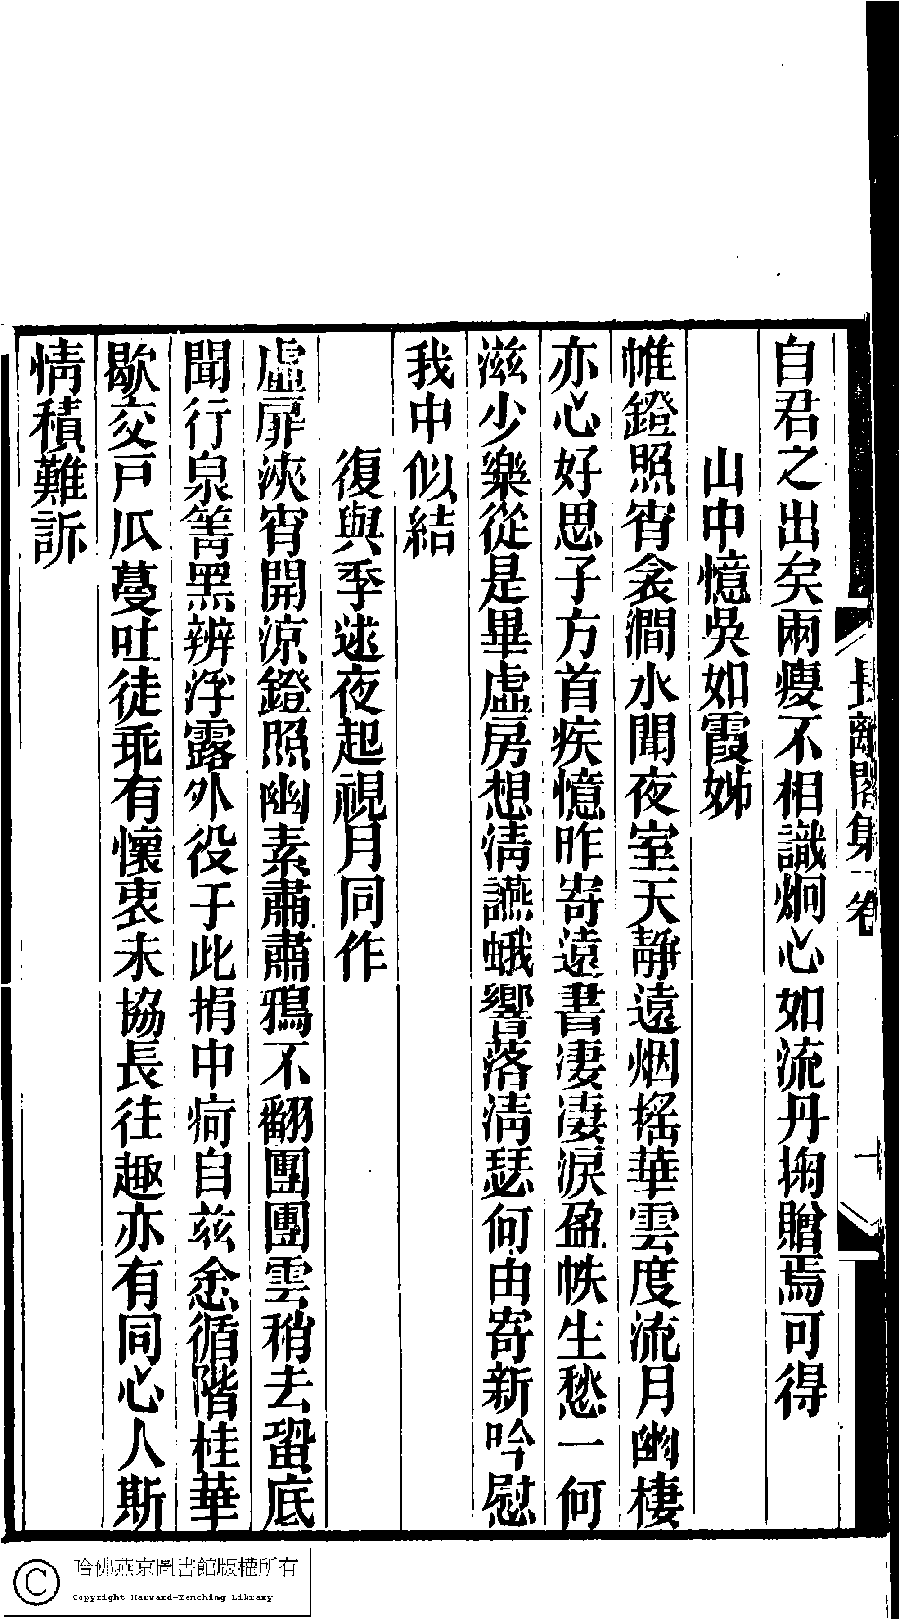 自君之出矣兩瘦不相識炯心如流丹掬贈焉可得
山中憶吳如霞姊
帷鐙照宵衾澗水聞夜室天靜遠烟搖華雲度流月幽棲
亦心好思子方首疾憶昨寄遠書凄凄淚盈帙生愁一何
滋少樂從是畢虛房想淸讌蛾響落淸瑟何由寄新吟慰
我中似結
復與季逑夜起視月同作
虛扉浹宵開涼鐙照幽素肅肅鴉不翻團團雲稍去畱底
聞行泉箐黑辨浮露外役于此捐中疴自茲悆循階桂華
歇交戸瓜蔓吐徒乖有懷衷未協長往趣亦有同心人斯
情積難訴
長離閣集
卷
一
哈佛燕京圖書館版權所有
Copyright Harvard-Yenching Library